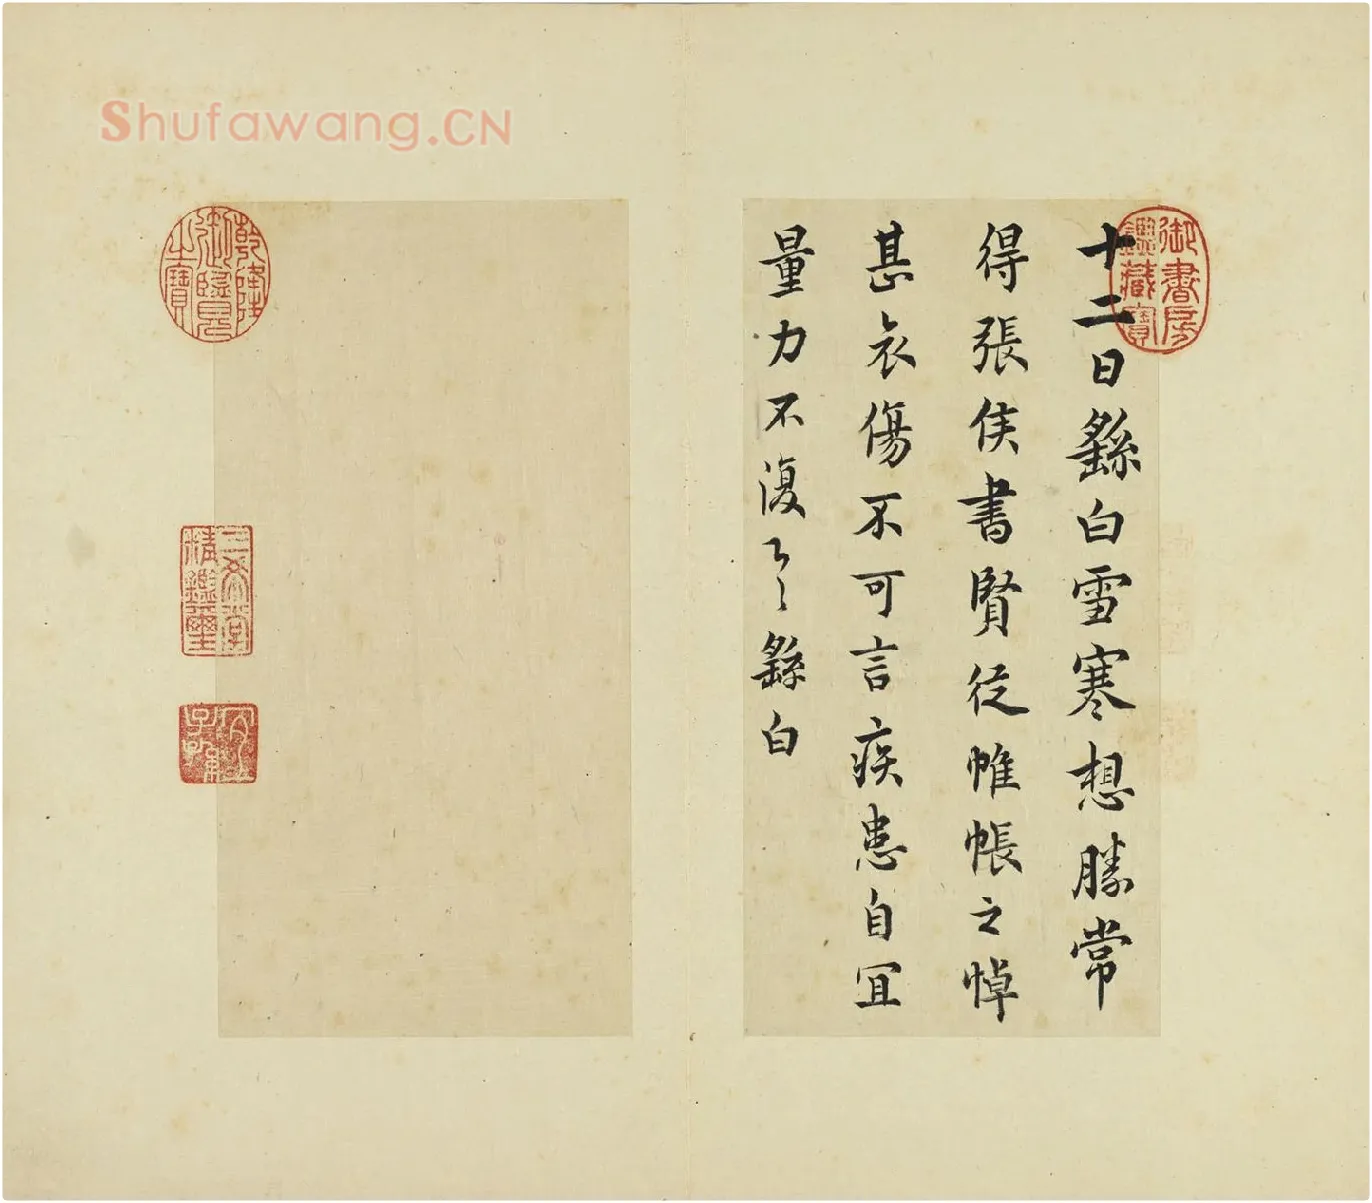 御書房鑑藏寶
十二日繇白雪寒想勝常
得張侯書賢從帷帳之悼
甚哀傷不可言疾患自宜
量力不復繇白
乾隆御覽之寶
三希堂精鑑璽
宜子孫
Shufawang.CN